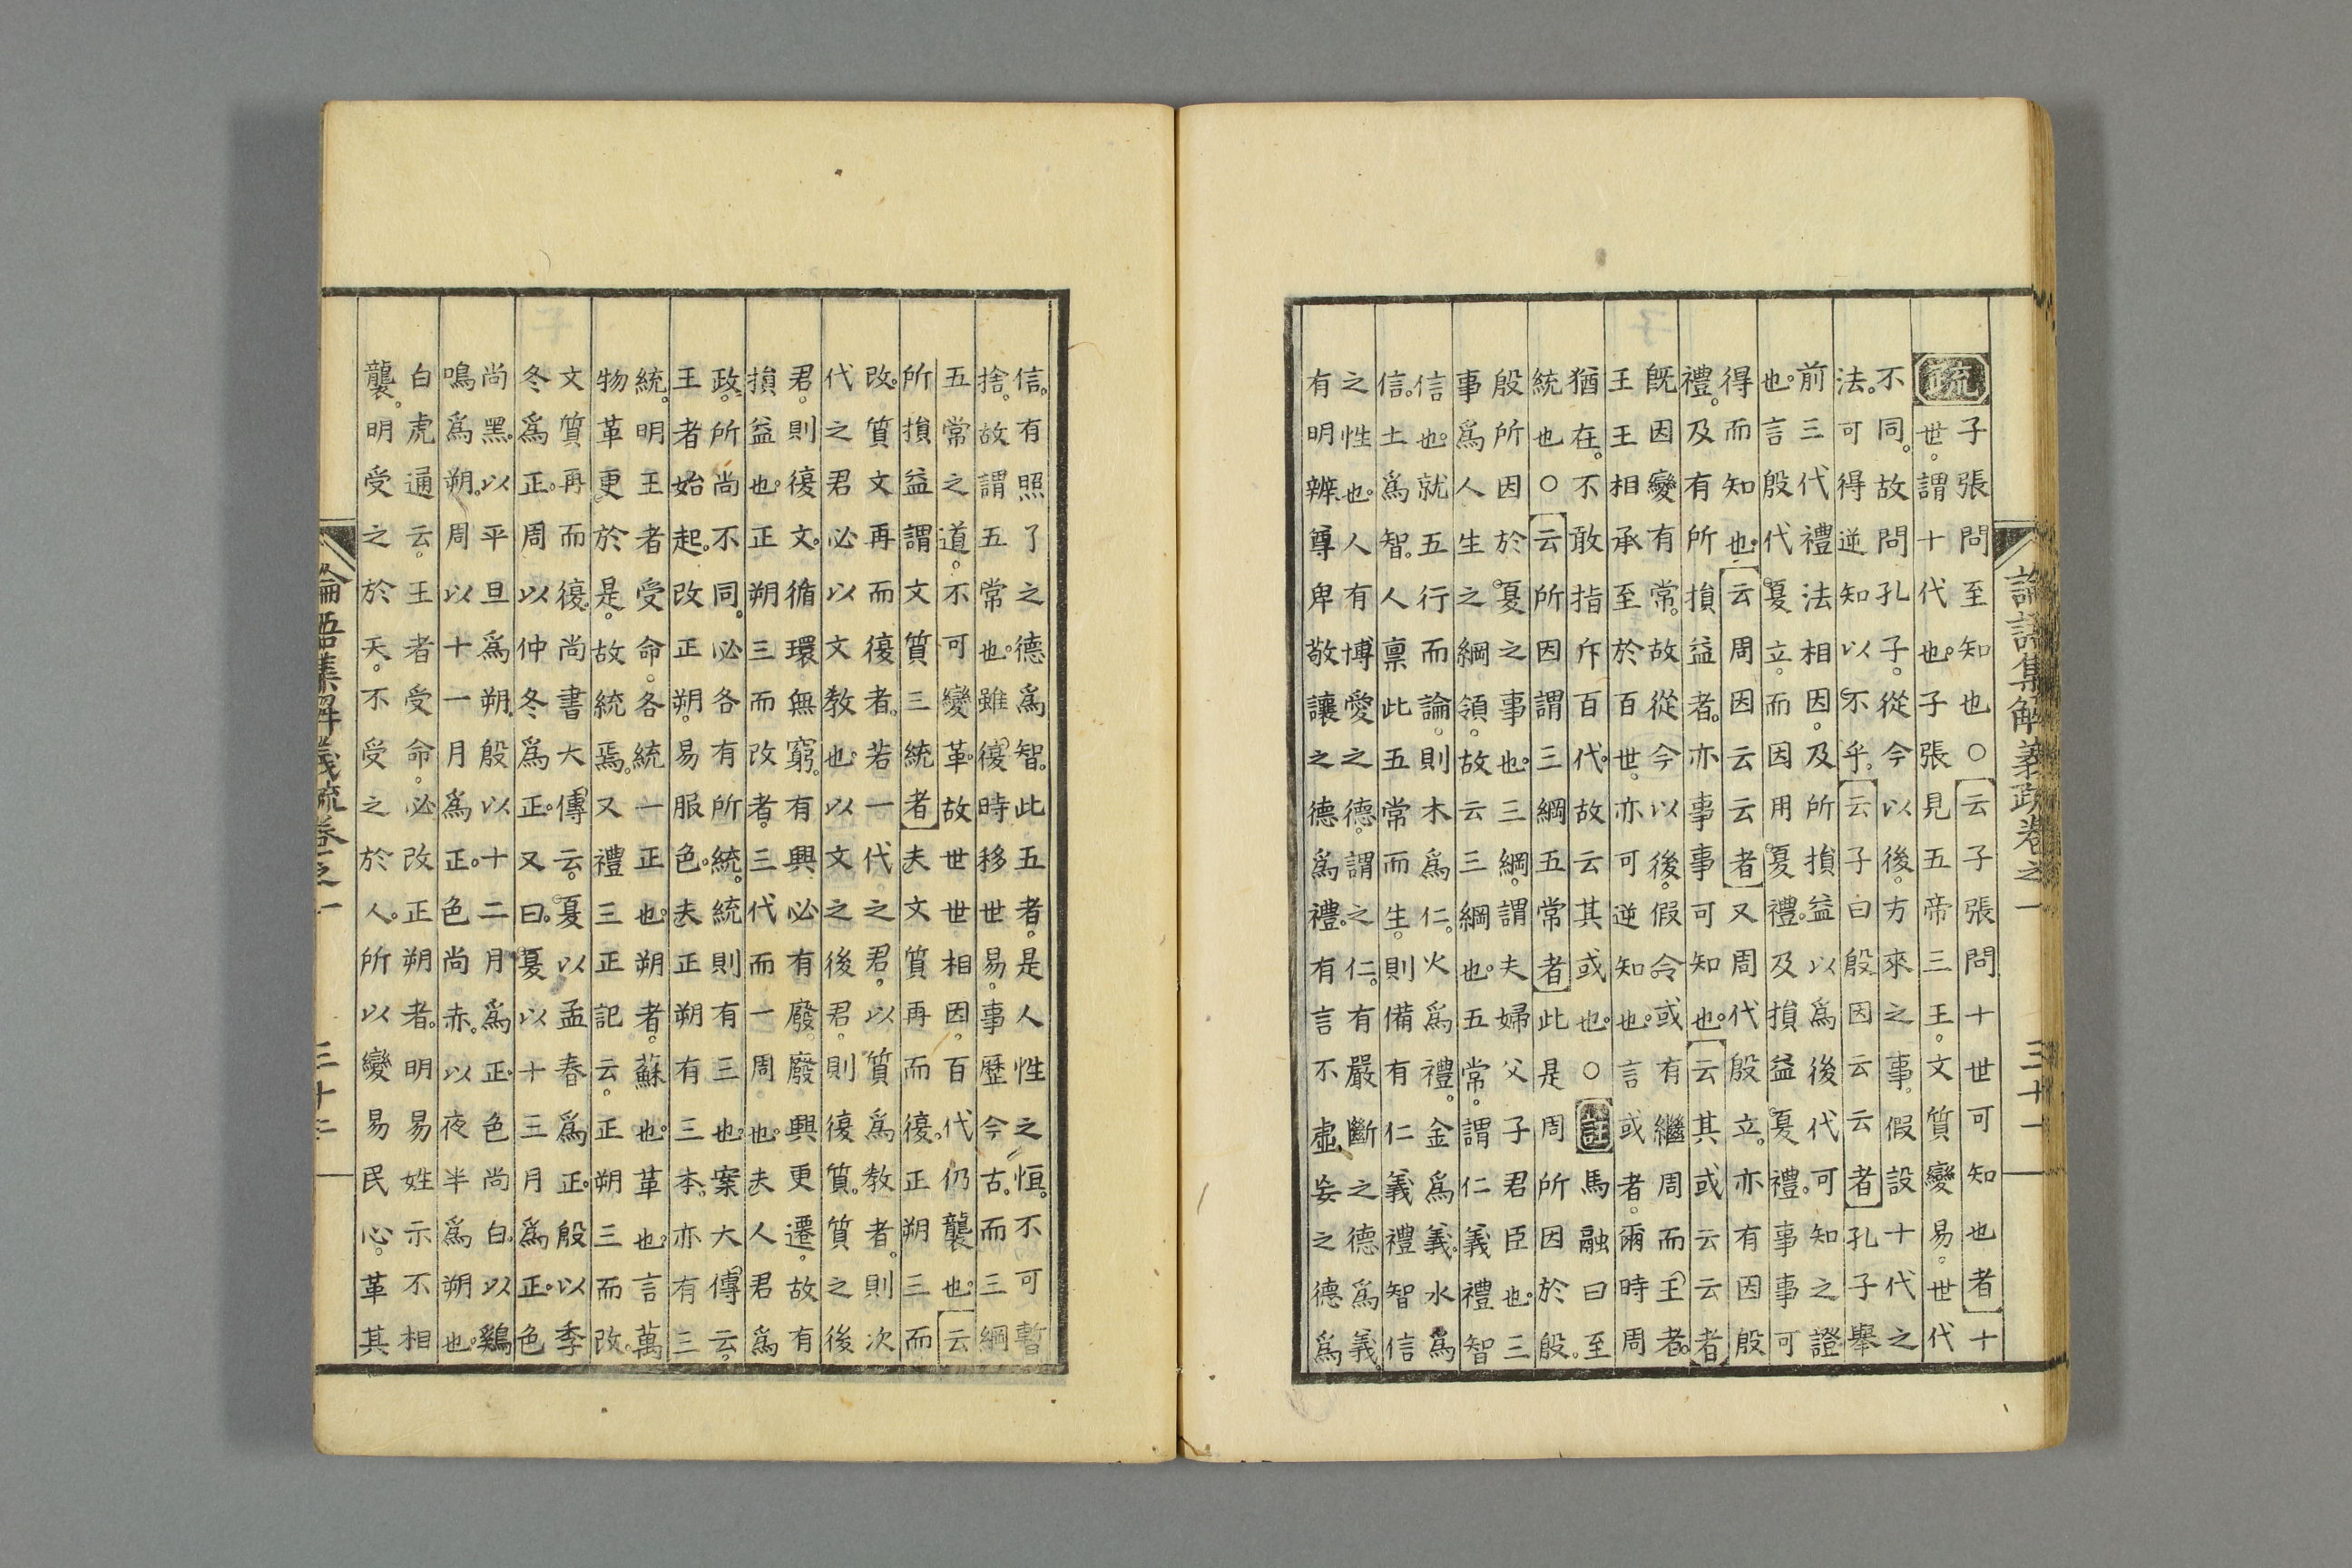 論語集解義疏卷之一
三十一
疏
子張問至知也○云子張問十世可知也者十
世謂十代也子張見五帝三王文質變易世代
不同故問孔子從今以後方來之事假設十代之
法可得逆知以不乎云子曰殷因云云者孔子舉
前三代禮法相因及所損益以為後代可知之證
也言殷代夏立而因用夏禮及損益夏禮事事可
得而知也云周因云云者又周代殷立亦有因殷
禮及有所損益者亦事事可知也云其或云云者
既因變有常故從今以後假令或有繼周而王者
王王相承至於百世亦可逆知也言或者爾時周
猶在不敢指斥百代故云其或也○註馬融曰至
統也○云所因謂三綱五常者此是周所因於殷
殷所因於夏之事也三綱謂夫婦父子君臣也三
事為人生之綱領故云三綱也五常謂仁義禮智
信也就五行而論則木為仁火為禮金為義水為
信土為智人稟此五常而生則備有仁義禮智信
之性也人有博愛之德謂之仁有嚴斷之德為義
有明辨尊卑敬讓之德為禮有言不虛妄之德為
信有照了之德為智此五者是人性之恒不可暫
捨故謂五常也雖復時移世易事歷今古而三綱
五常之道不可變革故世世相因百代仍襲也云
所損益謂文質三統者夫文質再而復正朔三而
改質文再而復者若一代之君以質為教者則次
代之君必以文教也以文之後君則復質質之後
君則復文循環無窮有興必有廢廢興更遷故有
損益也正朔三而改者三代而一周也夫人君為
政所尚不同必各有所統統則有三也案大傳云
王者始起改正朔易服色夫正朔有三本亦有三
統明王者受命各統一正也朔者蘇也革也言萬
物革更於是故統焉又禮三正記云正朔三而改
文質再而復尚書大傳云夏以孟春為正殷以季
冬為正周以仲冬為正又曰夏以十三月為正色
尚黑以平旦為朔殷以十二月為正色尚白以鷄
鳴為朔周以十一月為正色尚赤以夜半為朔也
白虎通云王者受命必改正朔者明易姓示不相
襲明受之於天不受之於人所以變易民心革其
論語集解義疏卷之一
三十二